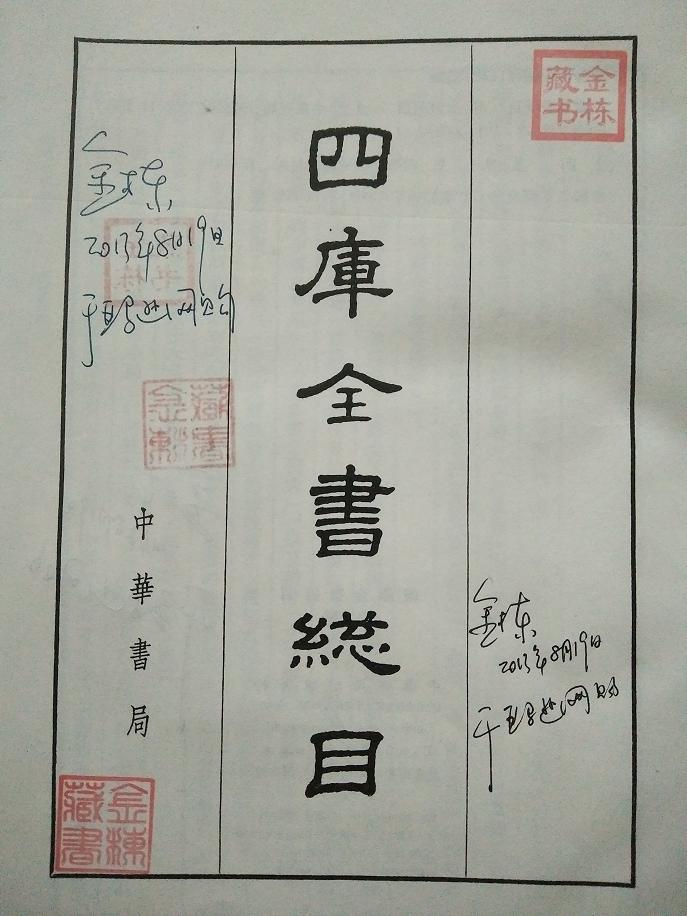 金栋
藏书
四庫全書総目
金栋
2013年8月19日
于亚马逊网购
藏書
金栋
中華書局
金栋
2013年8月19日
于亚马逊网购
金棟
藏書